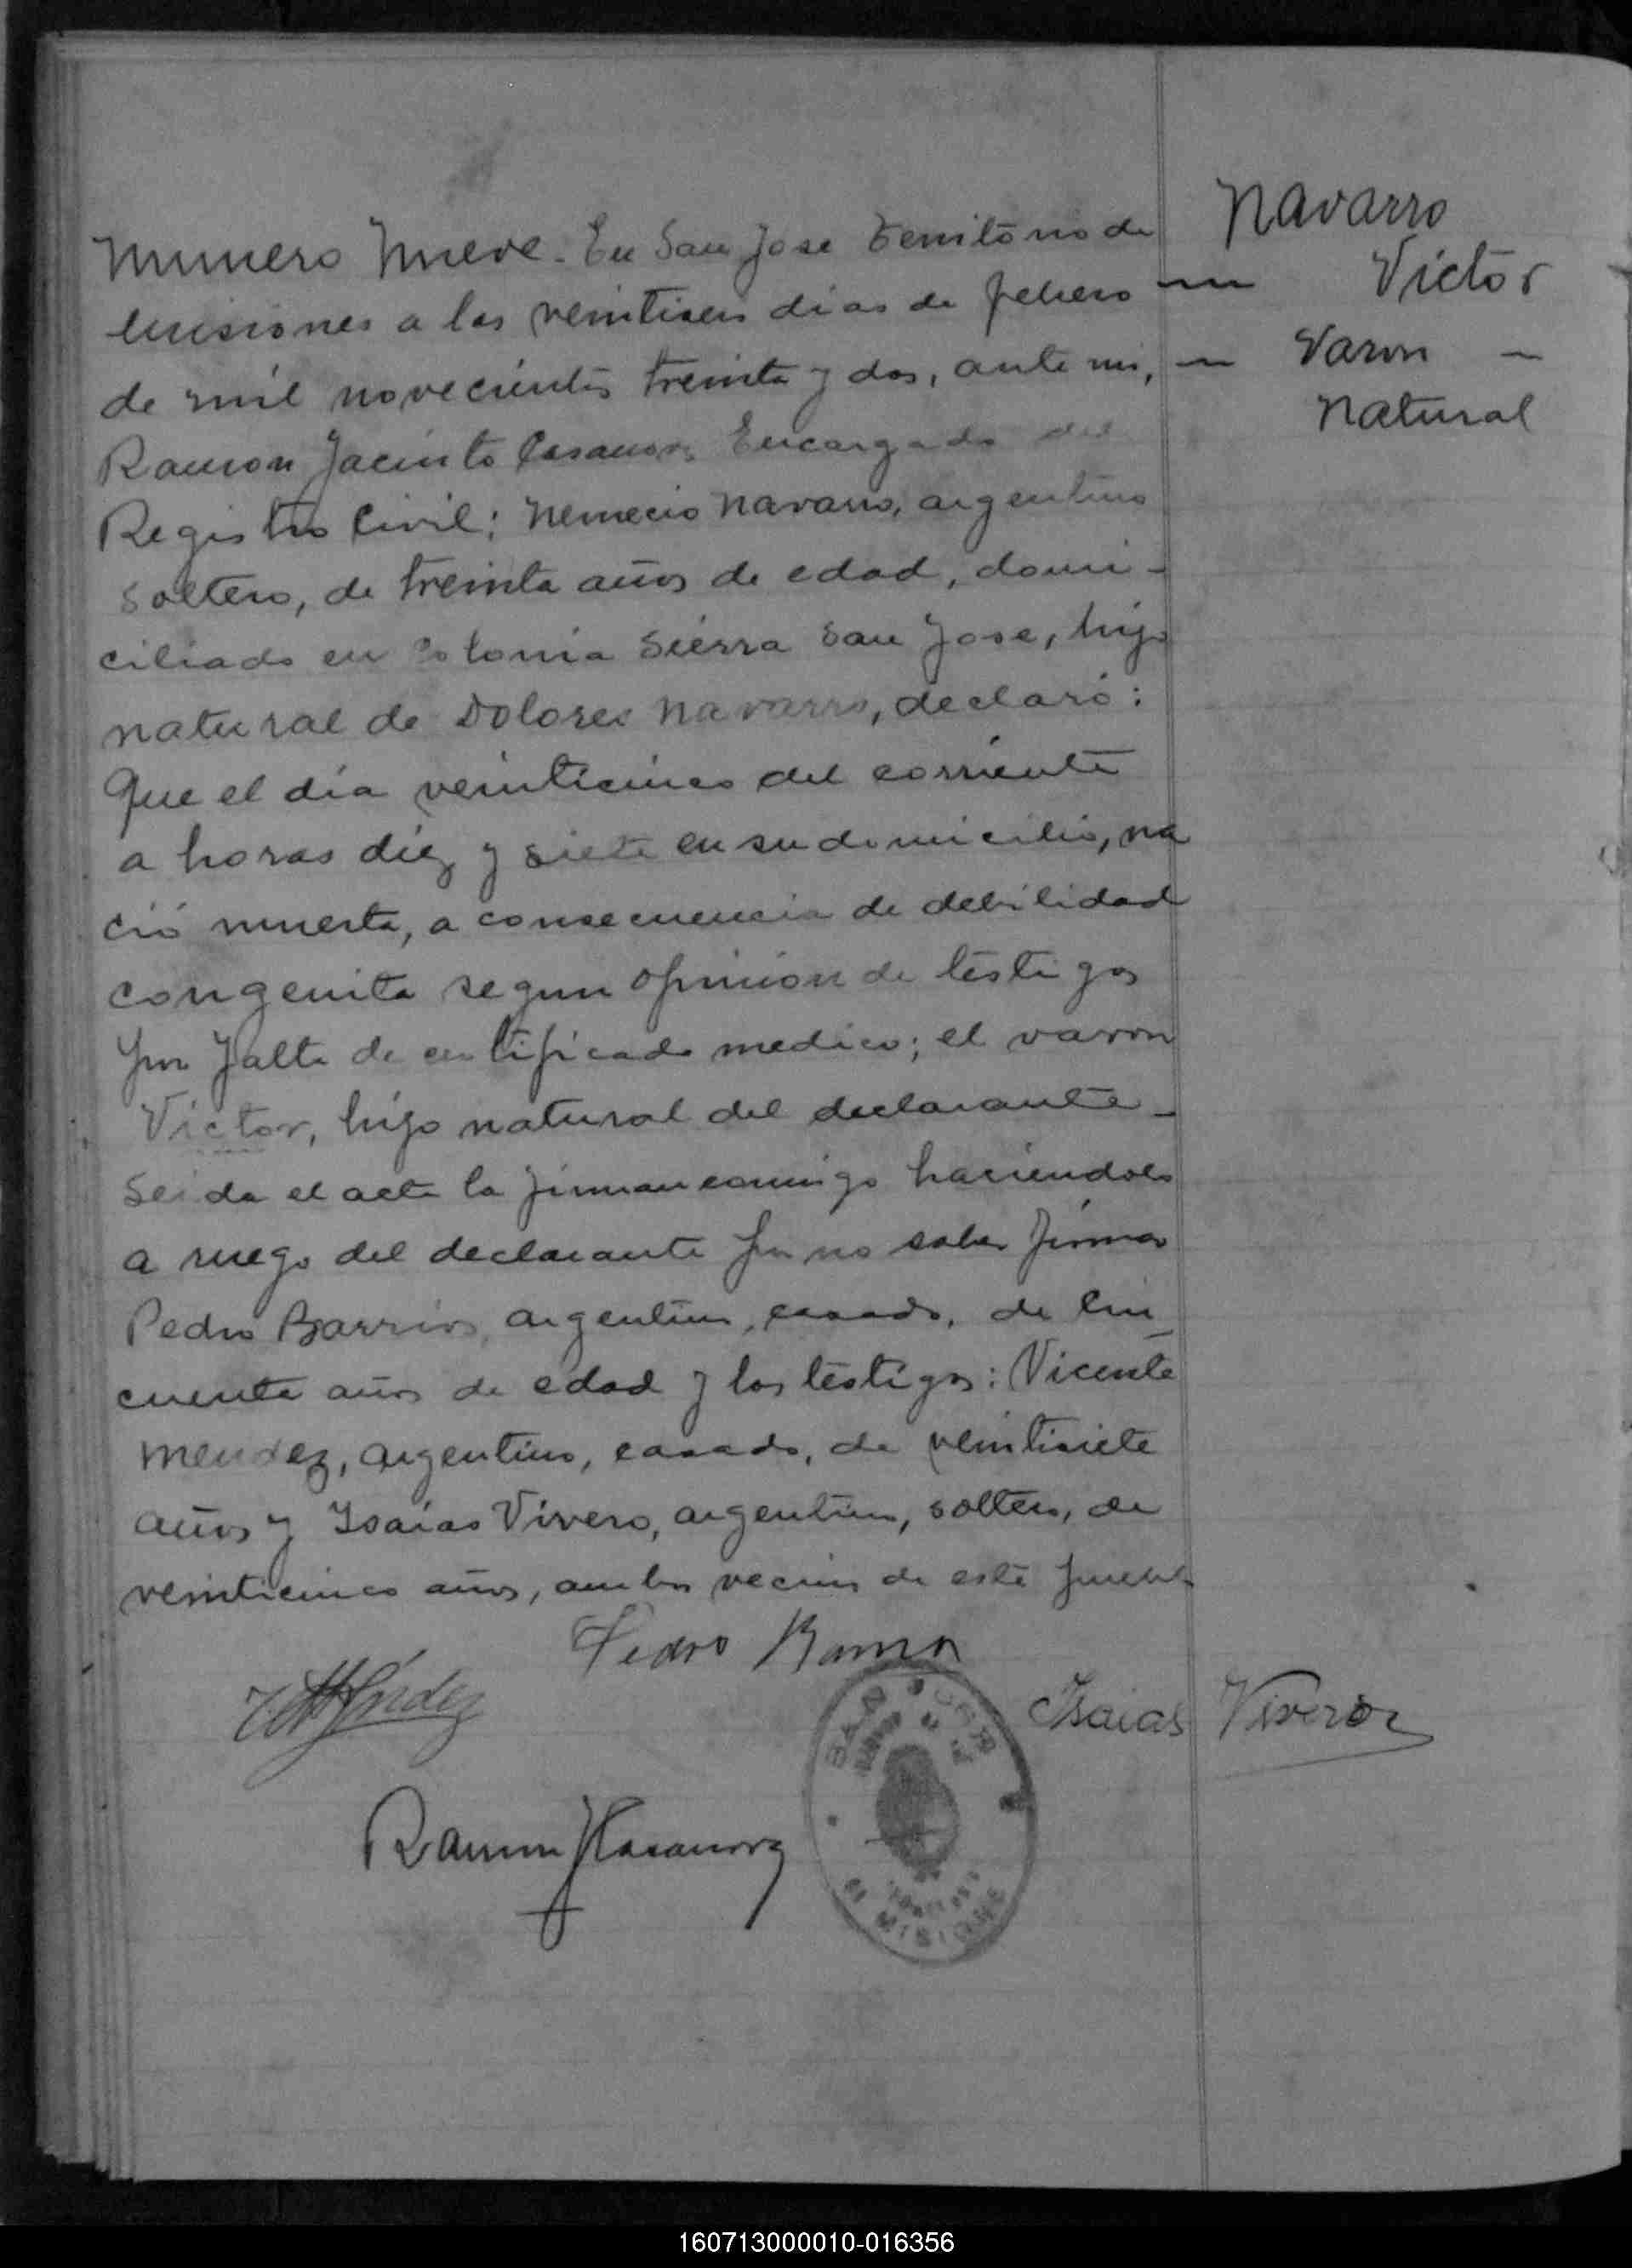 Numero Nueve. En San Jose Territorio de
Misiones a los veintiseis dias de febrero
de mil novecientos treinta y dos, ante mi,
Ramon Jacinto Casanova Encargado del
Registro Civil; Nemecio Navarro, argentino
soltero, de treinta años de edad, domi-
ciliado en Colonia Sierra San Jose, hijo
natural de Dolores Navarro, declaró:
Que el día veinticinco del corriente
a horas diez y siete en su domicilio, na
ció muerta, a consecuencia de debilidad
congenita segun opinion de testigos
por falta de certificado medico; el varon
Victor, hijo natural del declarante-
Leida el acta la firman conmigo haciendolo
a ruego del declarante por no saber firmar
Pedro Barrios, argentino, casado, de cin
cuenta años de edad y los testigos: Vicente
Mendez, argentino, casado, de veintisiete
años y Isaias Vivero, argentino, soltero, de
veinticinco años, ambos vecinos de este pueblo
Navarro
Victor
Varon
Natural
Pedro
Méndez
Isaias Vivero
Ramon JCasanova
SAN JOSE
MISIONES
160713000010-016356